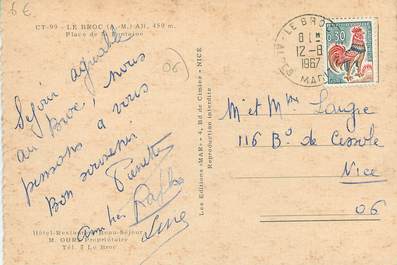 6€
CT-99 - LE BROC (A.-M.) Alt. 450 m.
Place de la Fontaine
06
Séjour agréable
au Broc, nous
pensons à vous
Bon souvenir
Pierrette
Line
Hôtel-Restaurant Beau-Séjour
Propriétaire
Tél. 2 Le Broc
Les Editions "MAR" - 4, Bd de Cimiez - NICE
Reproduction interdite
LE BROC
12-8
1967
0,30
M et Mme
116 Bd de Cessole
Nice
06